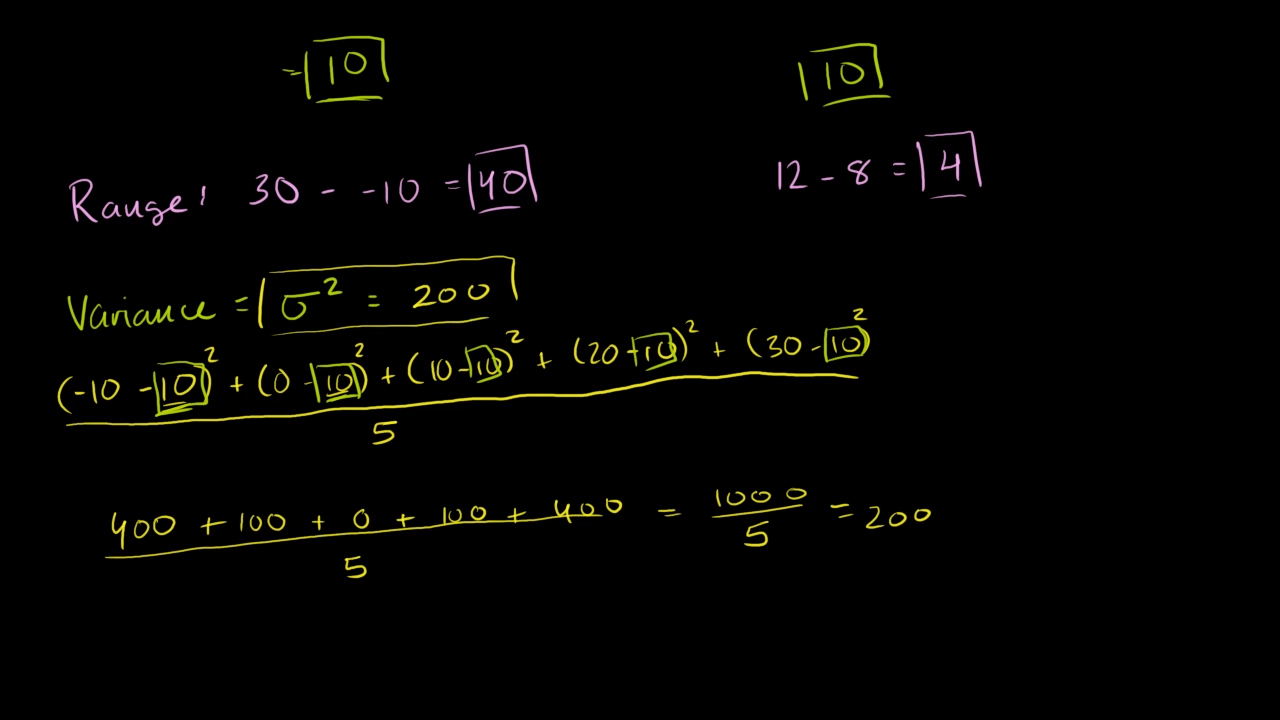 = 10 10
Range: 30 - -10 = 40 12 - 8 = 4
Variance = σ² = 200
(-10 - 10)² + (0 - 10)² + (10 - 10)² + (20 - 10)² + (30 - 10)²
5
400 + 100 + 0 + 100 + 400 = 1000 = 200
5 5